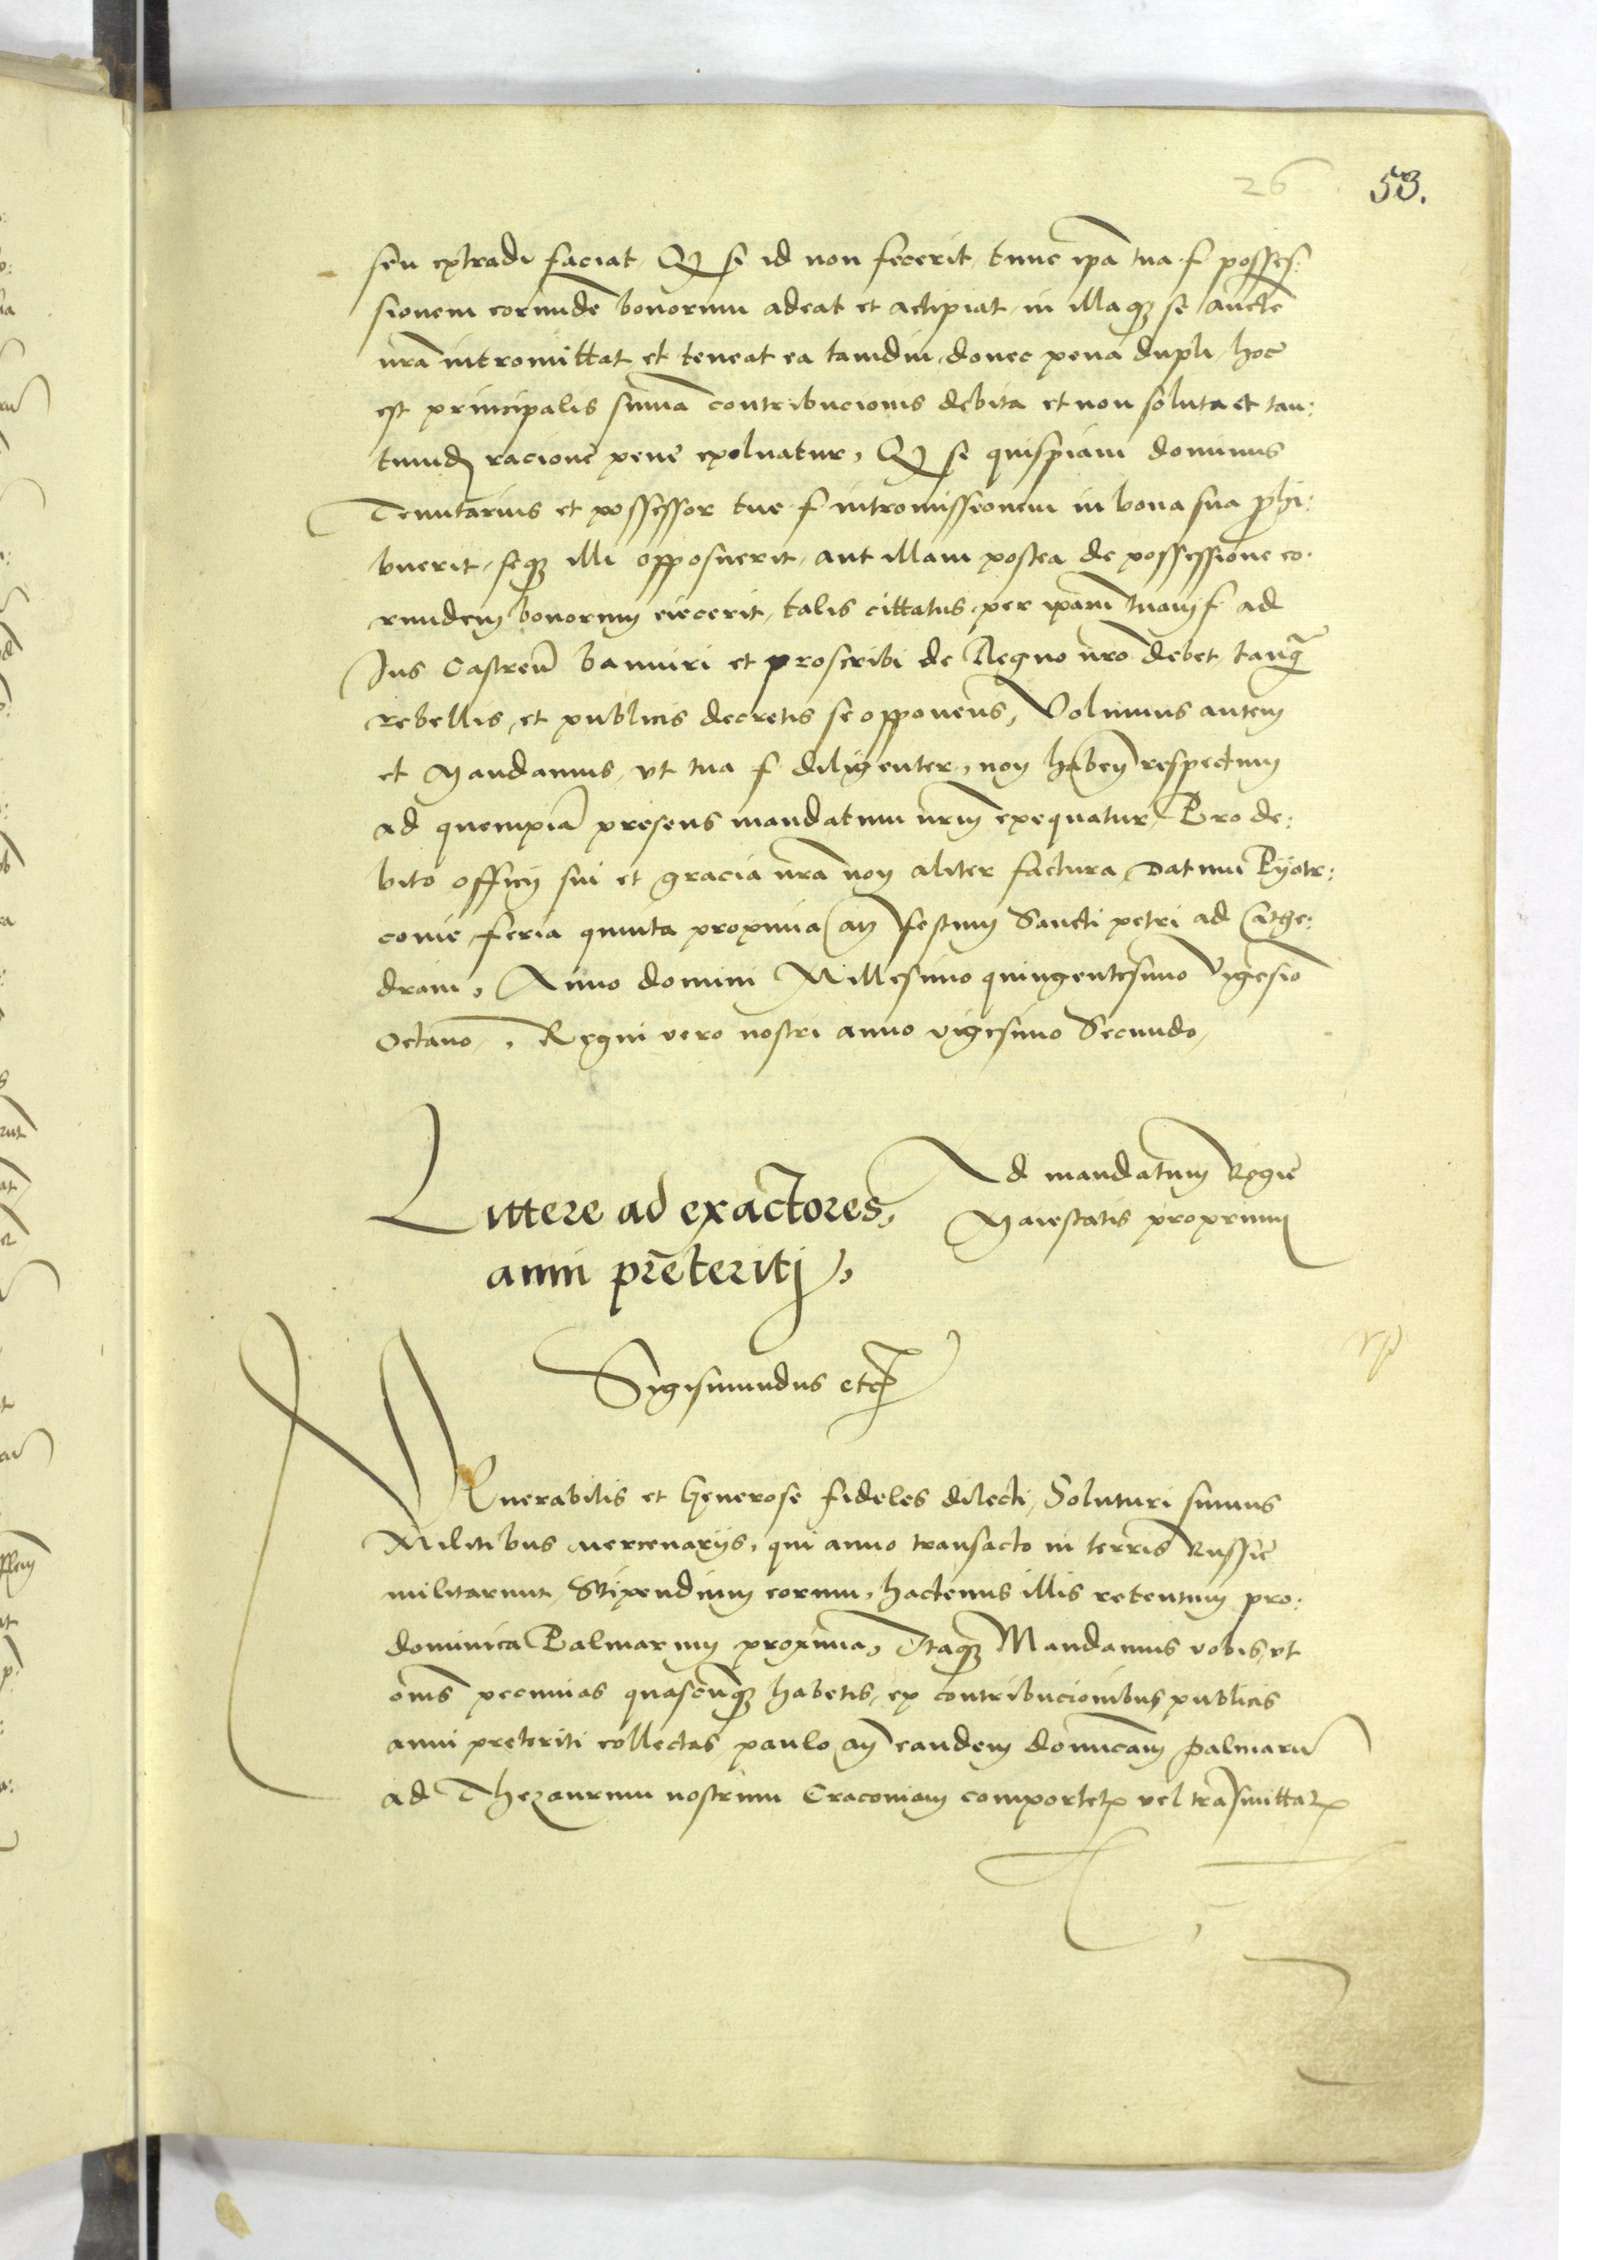 26 53.
seu extradi faciat, Qd si id non fecerit, tunc ipa tua f posses:
sionem eorunde bonorum adeat et accipiat, in illaqz se aucte
nra intromittat et teneat ea tamdiu, donec pena dupli, hoc
est principalis suma contribucionis debita et non soluta et tan:
tumdem racione pene exoluatur, Qd si quispiam dominus
Tenutarius et possessor tue f intromissionem in bona sua phi:
buerit, seqz illi opposuerit, aut illam postea de possessione eo:
rundem bonorum eiecerit, talis cittatus per ipam tuam f ad
Ius Castren banniri et proscribi de Regno nro debet, tanq
rebellis, et publicis decretis se opponens, Volumus autem
et Mandamus, vt tua f diligenter, non haben respectum
ad quempia presens mandatum nrm exequatur, Pro de:
bito officij sui et gracia nra non aliter factura, Datum Pyotr:
couie feria quinta proxima an festum Sancti petri ad Cathe:
dram, Anno domini Millesimo quingentesimo Vigesio
Octauo, Regni vero nostri anno vigesimo Secundo,
Littere ad exactores,
anni preteriti,
Ad mandatum Regie
Maiestatis proprium
Sigismundus etc
VEnerabilis et Generose fideles dilecti, Soluturi sumus
Militibus mercenarijs, qui anno transacto in terris Russie
militarunt, Stipendium eorum, hactenus illis retentum pro:
dominica Palmarum proxima, Itaqz Mandamus vobis, vt
oms pecunias quascunqz habetis, ex contribucionibus publicis
anni preteriti collectas paulo an eandem dominicam palmaru
ad Thezaurum nostrum Cracouiam comportetis vel trasmittatis